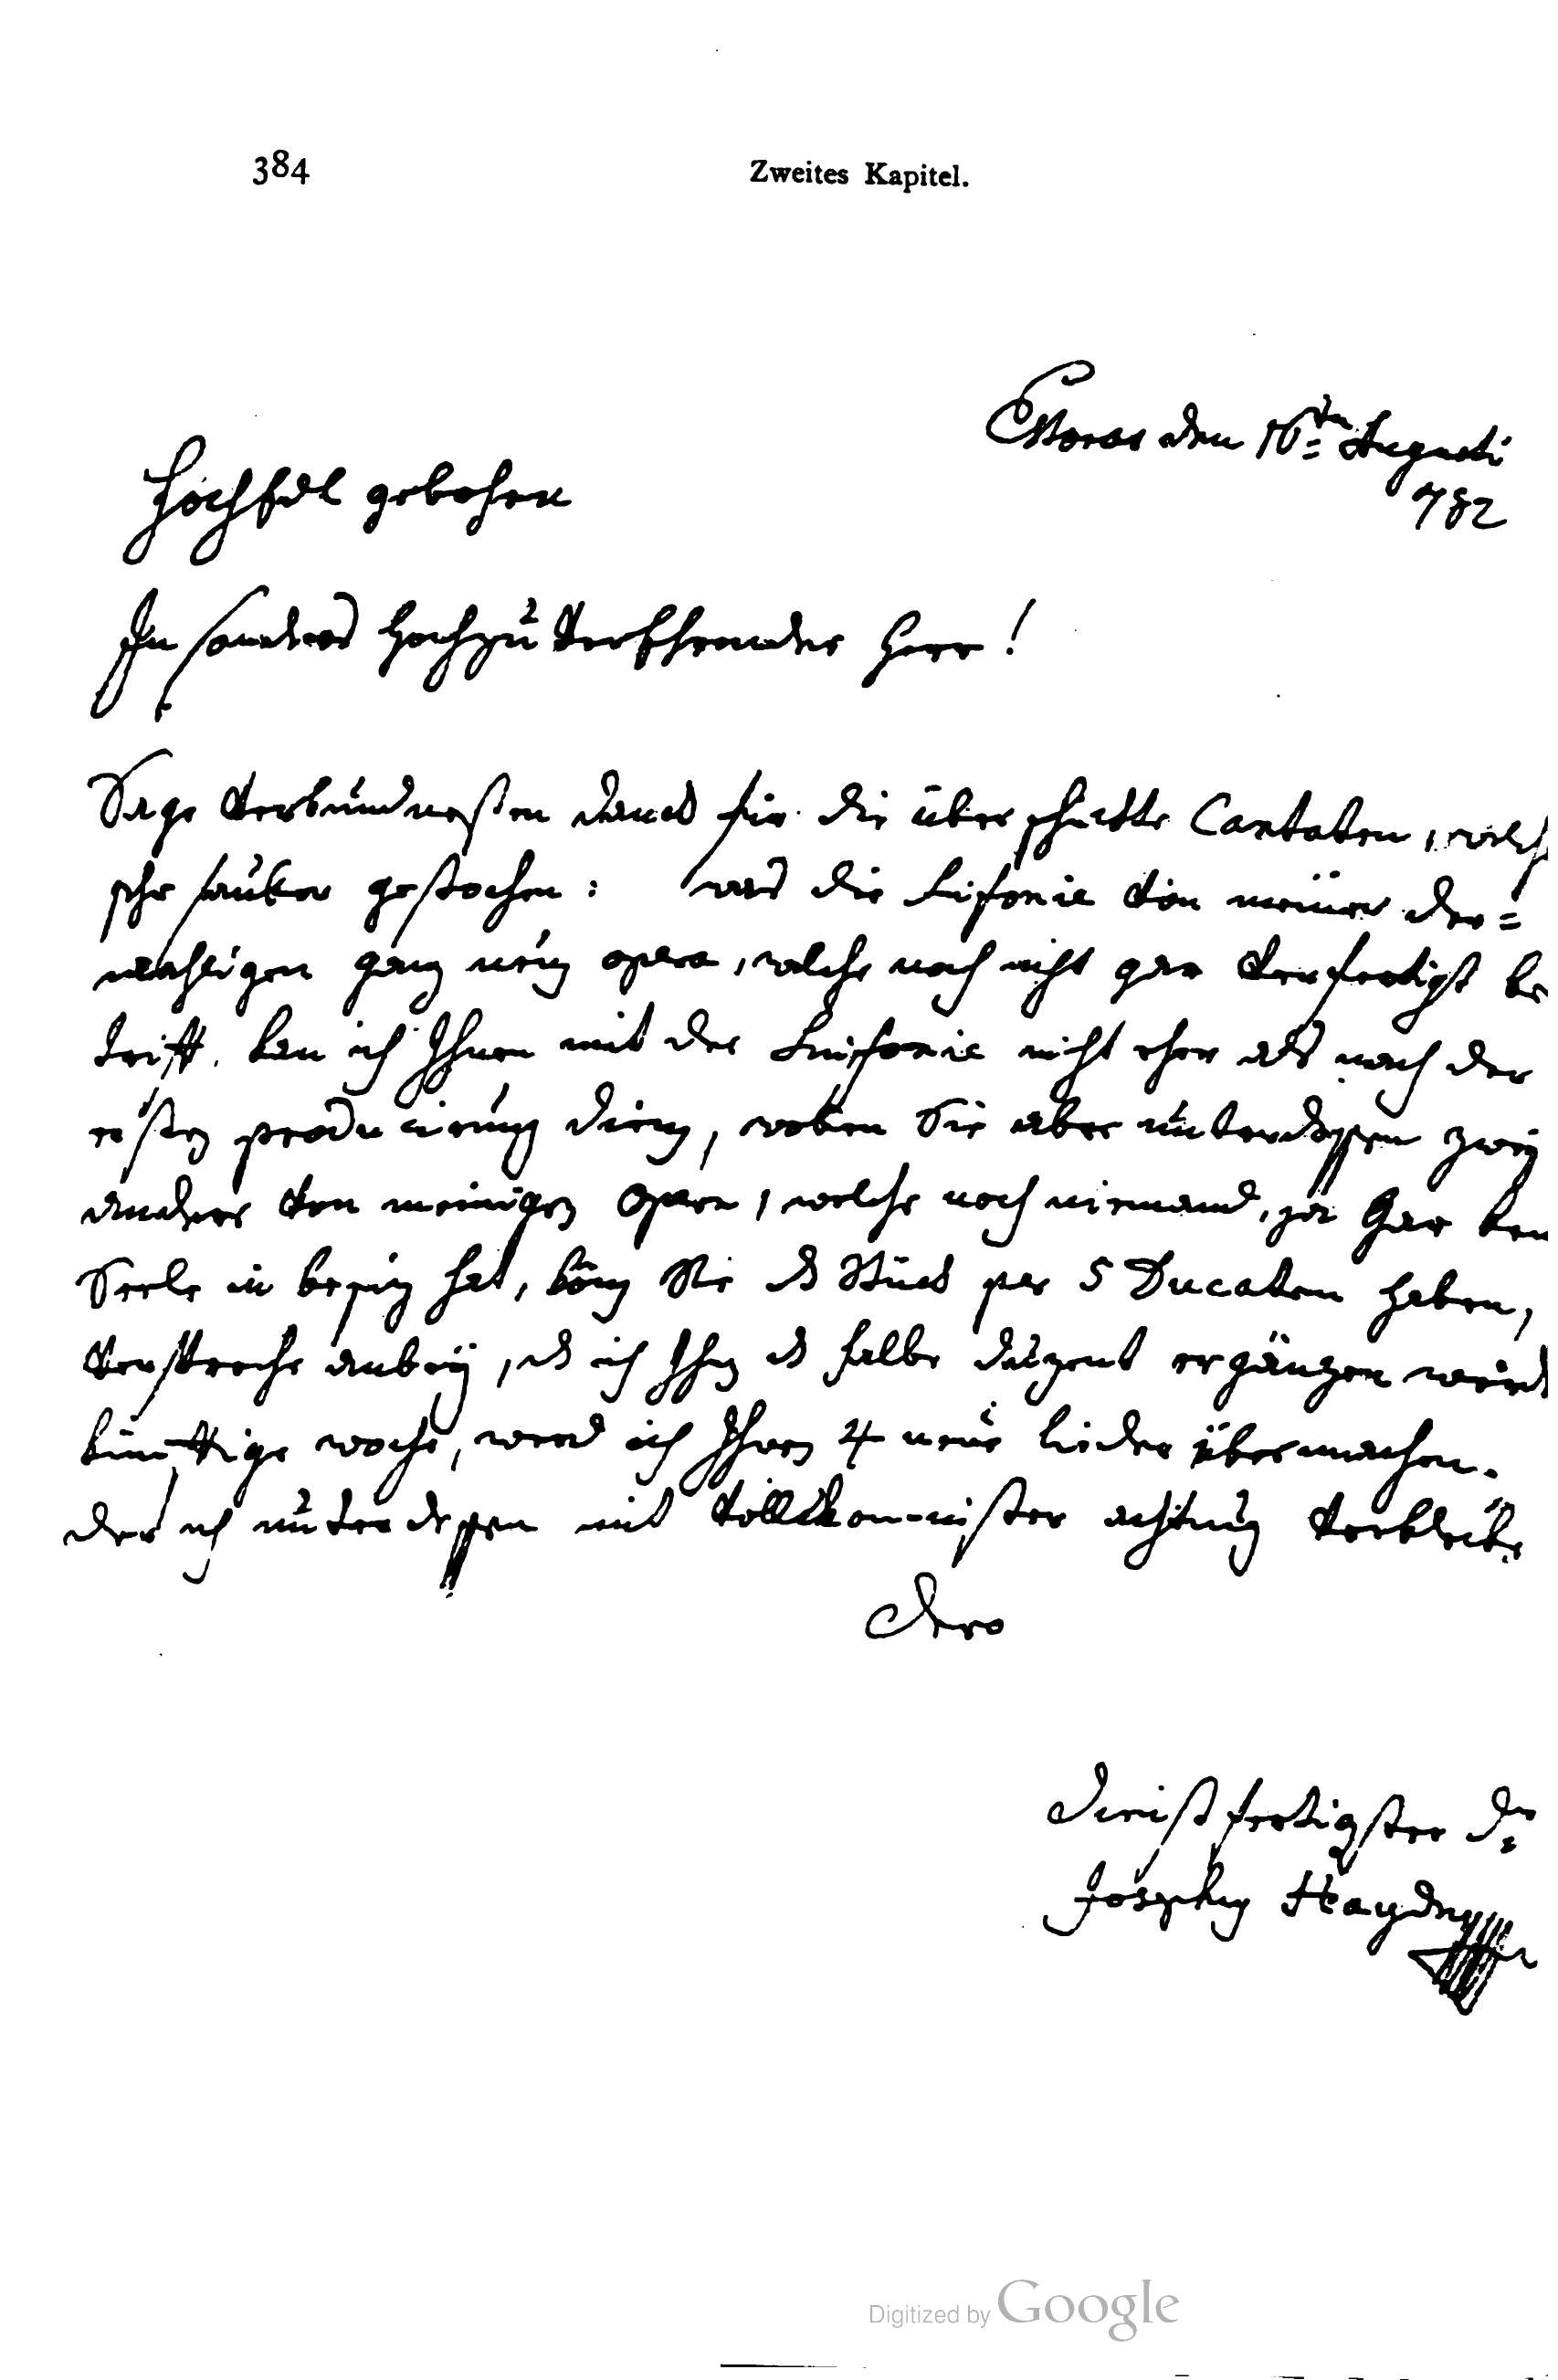 384
Zweites Kapitel.
Estoras den 16ten Augusti
782
HochEdl gebohren
In sonders Hochzu VerEhrender Herr!
Sage Verbundnesten danck für die überschickte Cantaten, welch
sehr sauber gestochen: was die Sinfonie von meiner der=
mahligen ganz neuen opera, welche noch nicht gar Verfertigt be
trifft. kan ich Ihnen mit der Sinfonie nicht eher als nach der
ersten producirung dienen, wollen Sie aber unterdessen zwey
andere von meinigen Opern, welche noch niemand, ja Gar kein
Seele in besiz hat, können Sie das Stück per 5 Ducaten haben,
Verspreche anbey, das ich Ihnen das halbe duzent ergänzen werde
künfftige woche, werd ich Ihnen 4 neue Lieder übermachen.
der ich unterdessen mit Vollkommnister achtung Verbleibe
Dero
dienstfertigster dr
Josephus Haydn
Digitized by Google